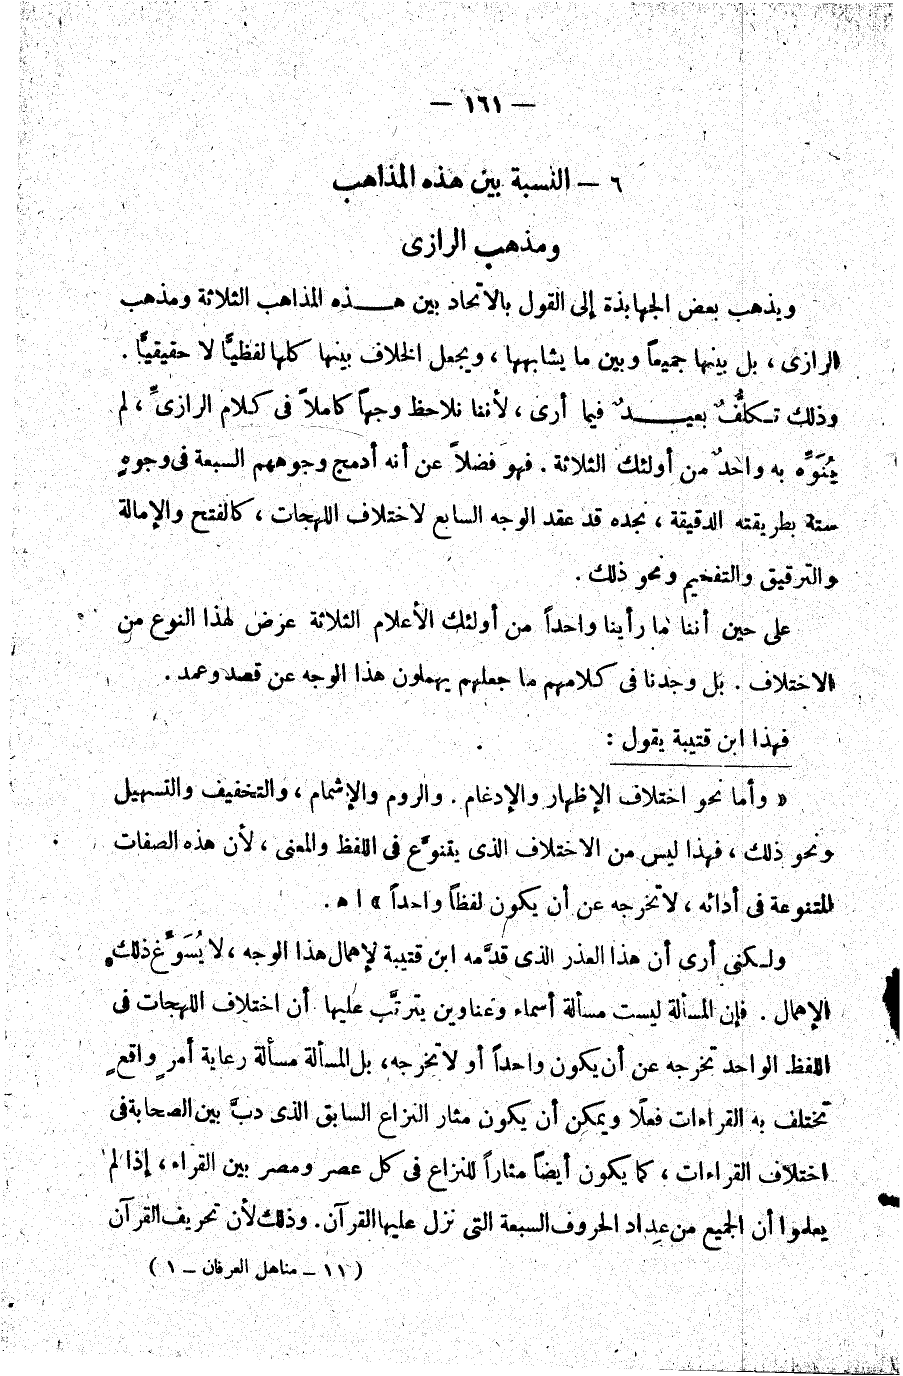 — ١٦١ —
٦ — النسبة بين هذه المذاهب
ومذهب الرازى
ويذهب بعض الجهابذة إلى القول بالاتحاد بين هـــذه المذاهب الثلاثة ومذهب
الرازى ، بل بينها جميعاً وبين ما يشابهها ، ويجعل الخلاف بينها كلها لفظيًّا لا حقيقيًّا .
وذلك تـكلُّفٌ بعيـــدٌ فيما أرى ، لأننا نلاحظ وجهاً كاملاً فى كـلام الرازىِّ ، لم
يُنَوِّه به واحدٌ من أولئك الثلاثة . فهو فضلاً عن أنه أدمج وجوههم السبعة فى وجوهٍ
ستة بطريقته الدقيقة ، نجده قد عقد الوجه السابع لاختلاف اللهجات ، كالفتح والإمالة
والترقيق والتفخيم ونحو ذلك .
على حين أننا ما رأينا واحداً من أولئك الأعلام الثلاثة عرض لهذا النوع من
الاختلاف . بل وجدنا فى كـلامهم ما جعلهم يهملون هذا الوجه عن قصد وعمد .
فهذا ابن قتيبة يقول :
« وأما نحو اختلاف الإظهار والإدغام . والروم والإشمام ، والتخفيف والتسهيل
ونحو ذلك ، فهذا ليس من الاختلاف الذى يتنوَّع فى اللفظ والمعنى ، لأن هذه الصفات
المتنوعة فى أدائه ، لا تخرجه عن أن يكون لفظاً واحداً » ا ه .
ولـكنى أرى أن هذا العذر الذى قدَّمه ابن قتيبة لإهمال هذا الوجه ، لا يُسَوِّغ ذلك
الإهمال . فإن المسألة ليست مسألة أسماء وعناوين يترتَّب عليها أن اختلاف اللهجات فى
اللفظ الواحد تخرجه عن أن يكون واحداً أو لا تخرجه، بل المسألة مسألة رعاية أمرٍ واقعٍ
تختلف به القراءات فعلًا ويمكن أن يكون مثار النزاع السابق الذى دبَّ بين الصحابة فى
اختلاف القراءات ، كما يكون أيضاً مثاراً للنزاع فى كل عصر ومصر بين القراء ، إذا لم
يعلموا أن الجميع من عِداد الحروف السبعة التى نزل عليها القرآن. وذلك لأن تحريف القرآن
( ١١ — مناهل العرفان — ١ )